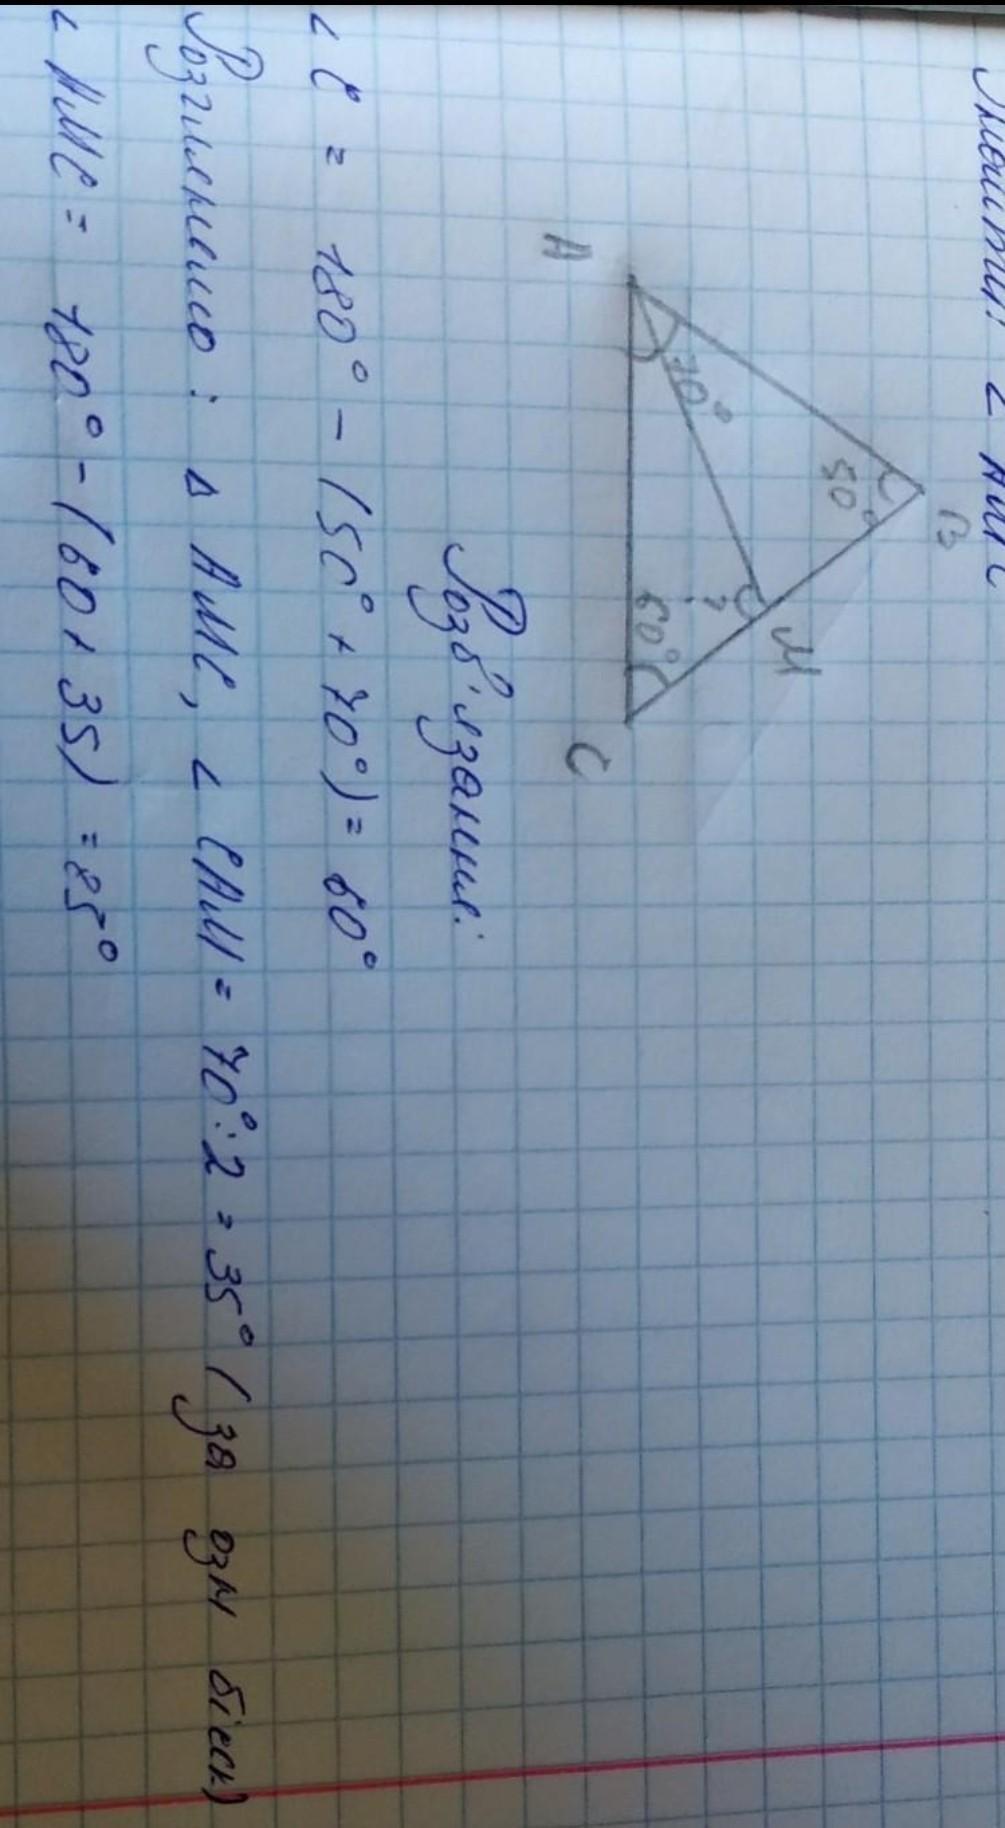 Знайти: ∠ АМС
В
50°
М
?
70°
60°
А
С
Розв'язання:
∠ С = 180° - (50° + 70°) = 60°
Розглянемо: Δ АМС, ∠ САМ = 70°:2 = 35° (за озн бісек)
∠ АМС = 180° - (60 + 35) = 85°